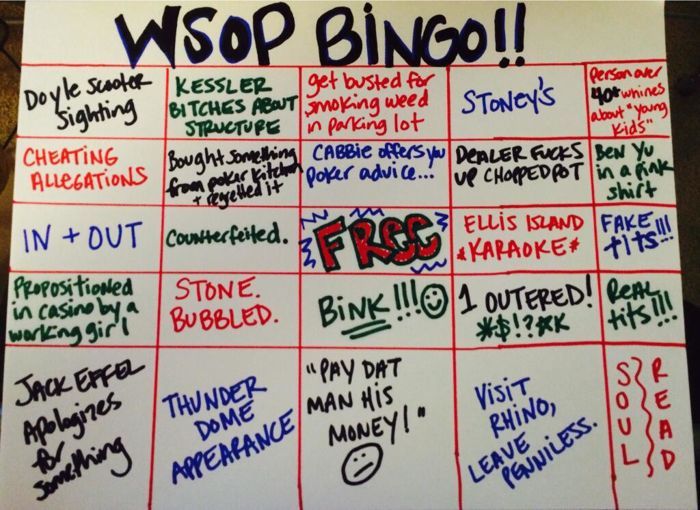 WSOP BINGO!!
Doyle Scooter
Sighting
KESSLER
BITCHES ABOUT
STRUCTURE
get busted for
smoking weed
in parking lot
STONEY'S
Person over
40+ whines
about "young
kids"
CHEATING
ALLEGATIONS
Bought something
from poker kitchen
+ regretted it
CABBIE offers you
poker advice...
DEALER FUCKS
UP CHOPPED POT
BEN YU
in a pink
shirt
IN + OUT
Counterfeited.
FREE
ELLIS ISLAND
*KARAOKE*
FAKE!!!
tits!!!
Propositioned
in casino by a
working girl
STONE.
BUBBLED.
BINK!!!
1 OUTERED!
*$!?*K
REAL
tits!!!
JACK EFFEL
Apologizes
for
something
THUNDER
DOME
APPEARANCE
"PAY DAT
MAN HIS
MONEY!"
VISIT
RHINO,
LEAVE
PENNILESS.
SOUL
READ